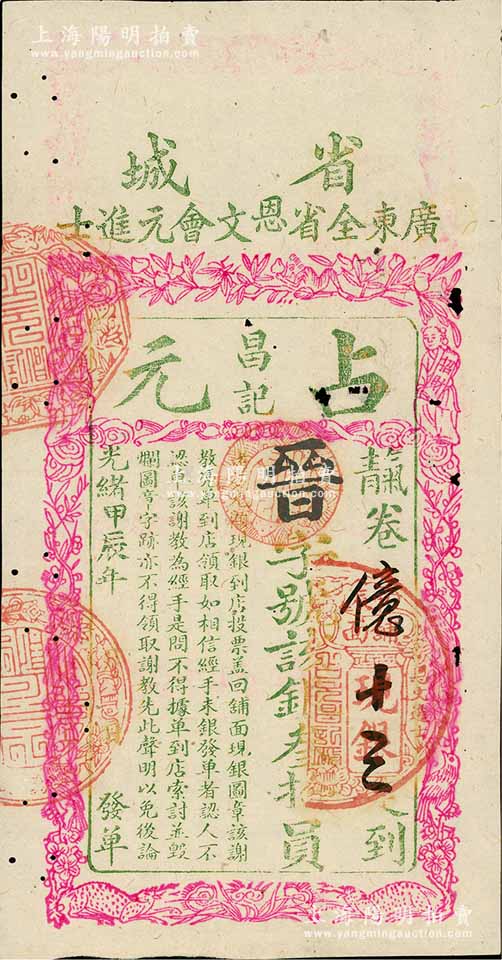 上海陽明拍賣
www.yangmingauction.com
省城
廣東全省恩文會元進士
占元
昌記
上海陽明拍賣
www.yangmingauction.com
號卷
億十三
到
晉
字號該銀叁拾員
現銀
現銀到店投票蓋回舖面現銀圖章該謝
教為單到店領取如相信經手未銀發單者認人不
認單該謝教為經手是問不得據單到店索討並毀
爛圖章字跡亦不得領取謝教先此聲明以免後論
光緒甲辰年
發單
上海陽明拍賣
www.yangmingauction.com